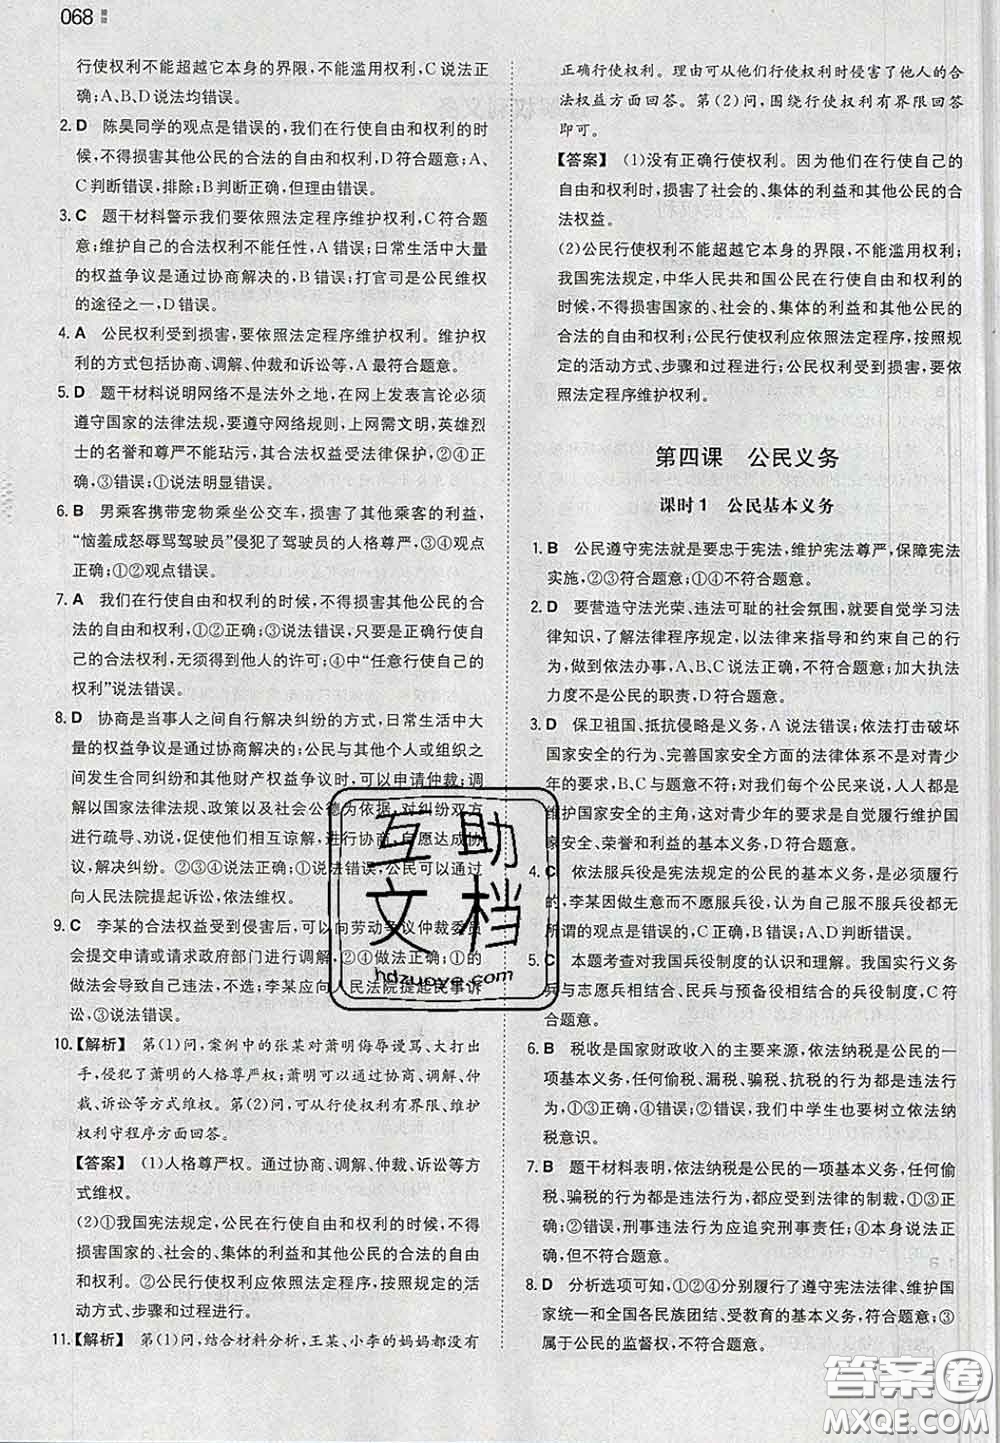 068
行使权利不能超越它本身的界限,不能滥用权利,C说法正
确;A、B、D说法均错误。
2. D 陈昊同学的观点是错误的,我们在行使自由和权利的时
候,不得损害其他公民的合法的自由和权利,D符合题意;A、
C判断错误,排除;B判断正确,但理由错误。
3. C 题干材料警示我们要依照法定程序维护权利,C符合题
意;维护自己的合法权利不能任性,A错误;日常生活中大量
的权益争议是通过协商解决的,B错误;打官司是公民维权
的途径之一,D错误。
4. A 公民权利受到损害,要依照法定程序维护权利。维护权
利的方式包括协商、调解、仲裁和诉讼等,A最符合题意。
5. D 题干材料说明网络不是法外之地,在网上发表言论必须
遵守国家的法律法规,要遵守网络规则,上网需文明,英雄烈
士的名誉和尊严不能玷污,其合法权益受法律保护,②③④
说法正确;①说法明显错误。
6. B 男乘客携带宠物乘坐公交车,损害了其他乘客的利益,
“恼羞成怒辱骂驾驶员”侵犯了驾驶员的人格尊严,③④观点
正确;①②观点错误。
7. A 我们在行使自由和权利的时候,不得损害其他公民的合
法的自由和权利,①②正确;③说法错误,只要是正确行使自
己的合法权利,无须得到他人的许可;④中“任意行使自己的
权利”说法错误。
8. D 协商是当事人之间自行解决纠纷的方式,日常生活中大
量的权益争议是通过协商解决的;公民与其他个人或组织之
间发生合同纠纷和其他财产权益争议时,可以申请仲裁;调
解以国家法律法规、政策以及社会公德为依据,对纠纷双方
进行疏导、劝说,促使他们相互谅解,进行协商,自愿达成协
议,解决纠纷。②③④说法正确;①说法错误,公民可以通过
向人民法院提起诉讼,依法维权。
9. C 李某的合法权益受到侵害后,可以向劳动争议仲裁委员
会提交申请或请求政府部门进行调解,②④做法正确;①的
做法会导致自己违法,不选;李某应向人民法院提起民事诉
讼,③说法错误。
10.【解析】 第(1)问,案例中的张某对萧明侮辱谩骂、大打出
手,侵犯了萧明的人格尊严权;萧明可以通过协商、调解、仲
裁、诉讼等方式维权。第(2)问,可从行使权利有界限、维护
权利守程序方面回答。
【答案】 (1)人格尊严权。通过协商、调解、仲裁、诉讼等方
式维权。
(2)①我国宪法规定,公民在行使自由和权利的时候,不得
损害国家的、社会的、集体的利益和其他公民的合法的自由
和权利。②公民行使权利应依照法定程序,按照规定的活
动方式、步骤和过程进行。
11.【解析】 第(1)问,结合材料分析,王某、小李的妈妈都没有
正确行使权利。理由可从他们行使权利时侵害了他人的合
法权益方面回答。第(2)问,围绕行使权利有界限回答
即可。
【答案】 (1)没有正确行使权利。因为他们在行使自己的
权利时,损害了社会的、集体的利益和其他公民的合
法权益。
(2)公民行使权利不能超越它本身的界限,不能滥用权利;
我国宪法规定,中华人民共和国公民在行使自由和权利的
时候,不得损害国家的、社会的、集体的利益和其他公民的
合法的自由和权利;公民行使权利应依照法定程序,按照规
定的活动方式、步骤和过程进行;公民权利受到损害,要依
照法定程序维护权利。
第四课 公民义务
课时1 公民基本义务
1. B 公民遵守宪法就是要忠于宪法,维护宪法尊严,保障宪法
实施,②③符合题意;①④不符合题意。
2. D 要营造守法光荣、违法可耻的社会氛围,就要自觉学习法
律知识,了解法律程序规定,以法律来指导和约束自己的行
为,做到依法办事,A、B、C说法正确,不符合题意;加大执法
力度不是公民的职责,D符合题意。
3. D 保卫祖国、抵抗侵略是义务,A说法错误;依法打击破坏
国家安全的行为、完善国家安全方面的法律体系不是对青少
年的要求,B、C与题意不符;对我们每个公民来说,人人都是
维护国家安全的主角,这要求青少年应自觉履行维护国家
安全、荣誉和利益的义务,D符合题意。
4. C 依法服兵役是宪法规定的公民的基本义务,是必须履行
的,李某因做生意而不愿服兵役,认为自己服不服兵役都无
所谓的观点是错误的,C符合题意。
5. C 本题考查对我国兵役制度的认识和理解。我国实行义务
兵与志愿兵相结合、民兵与预备役相结合的兵役制度,C符
合题意。
6. B 税收是国家财政收入的主要来源,依法纳税是公民的一
项基本义务,任何偷税、漏税、骗税、抗税的行为都是违法行
为,①③正确,④错误;②错误,我们中学生也要树立依法纳
税意识。
7. B 题干材料表明,依法纳税是公民的一项基本义务,任何偷
税、骗税的行为都是违法行为,都应受到法律的制裁,①③正
确;②错误,刑事违法行为应追究刑事责任;④本身说法正
确,但不符合题意。
8. D 分析选项可知,①②④分别履行了遵守宪法法律、维护国
家统一和全国各民族团结、受教育的基本义务,符合题意;③
属于公民的监督权,不符合题意。
互助
文档
hdzuoye.com
答案圈
MXQE.COM